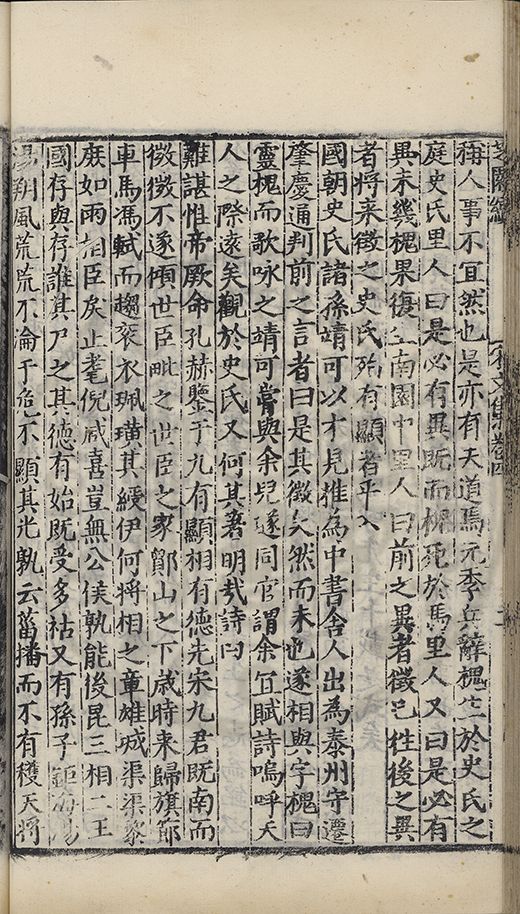 稱人事不宜然也是亦有天道焉元季兵辭槐生於史氏之
庭史氏里人曰是必有異既而槐死於馬里人又曰是必有
異未幾槐果復生南園中里人曰前之異者徵已徃後之異
者將來徵之史氏殆有顯者乎入
國朝史氏諸孫靖可以才見推為中書舍人出為泰州守遷
肇慶通判前之言者曰是其徵矣然而未也遂相與字槐曰
靈槐而歌咏之靖可嘗與余兒遂同官謂余宜賦詩嗚呼天
人之際遠矣觀於史氏又何其著明哉詩曰
難諶惟帝厥命孔赫鑒于九有顯相有德先宋九君既南而
微微不遂傾世臣毗之世臣之家鄮山之下歲時来歸旗節
車馬馮軾而趨衮衣珮璜其綬伊何將相之章雄城渠渠衆
庶如雨相臣矣止耄倪咸喜豈無公侯孰能後昆三相二王
國存與存誰其尸之其德有始既受多祜又有孫子鉅海湯
湯朔風荒荒不淪于危不顯其光孰云菑播而不有穫天將
文集卷四